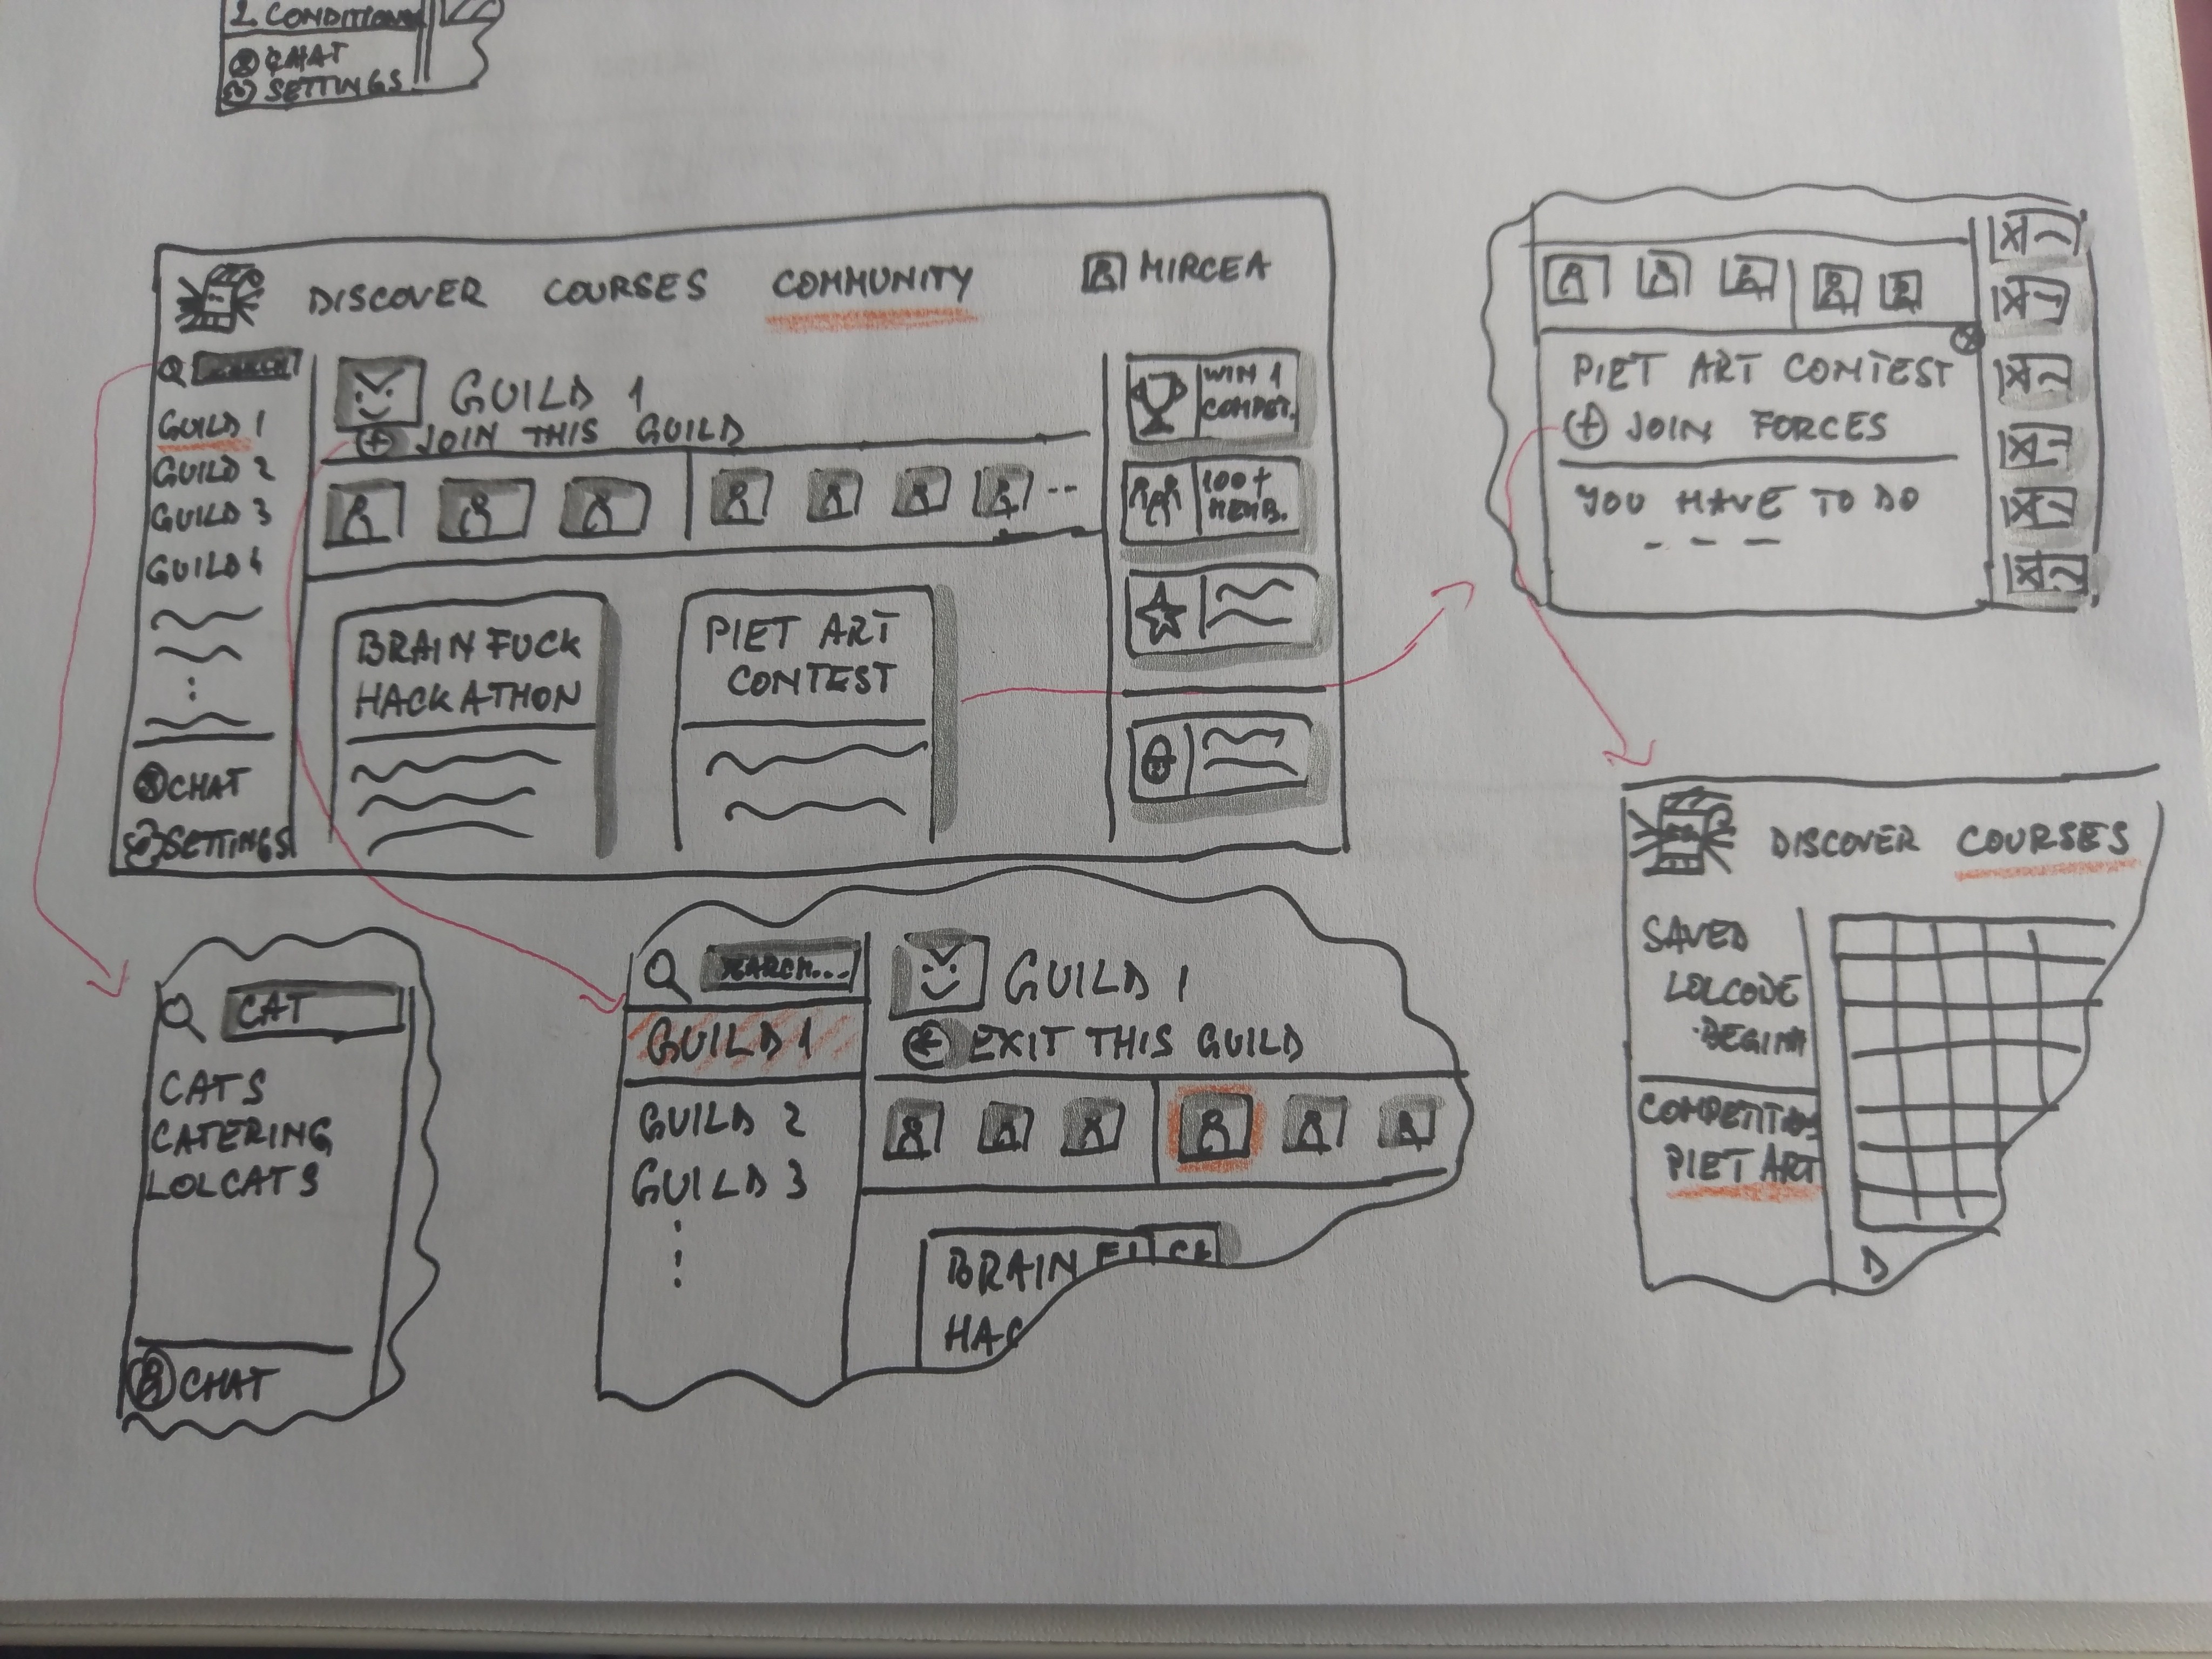 2 CONDITION
CHAT
SETTINGS
DISCOVER COURSES COMMUNITY MIRCEA
GUILD 1
GUILD 2
GUILD 3
GUILD 4
CHAT
SETTINGS
GUILD 1
JOIN THIS GUILD
BRAINFUCK
HACKATHON
PIET ART
CONTEST
WIN 1
COMPET.
100+
MEMB.
PIET ART CONTEST
JOIN FORCES
YOU HAVE TO DO
CAT
CATS
CATERING
LOLCATS
CHAT
SEARCH...
GUILD 1
GUILD 2
GUILD 3
GUILD 1
EXIT THIS GUILD
BRAIN
HAC
DISCOVER COURSES
SAVED
LOLCODE
BEGINN
COMPETITIONS
PIET ART
D